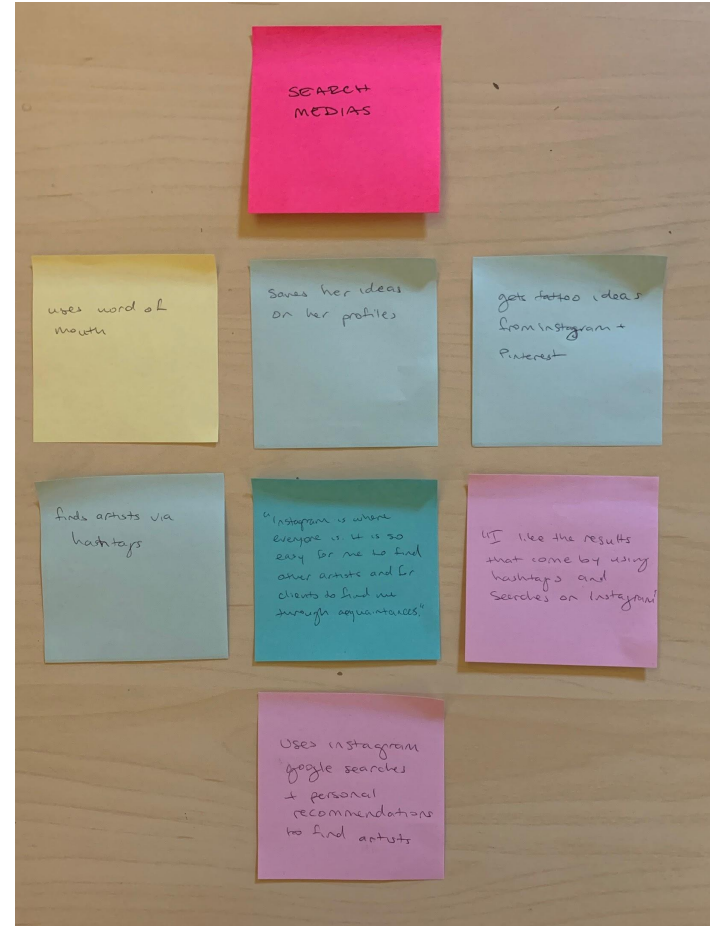 SEARCH
MEDIAS
uses word of
mouth
saves her ideas
on her profiles
gets tattoo ideas
from instagram +
Pinterest
finds artists via
hashtags
"Instagram is where
everyone is. it is so
easy for me to find
other artists and for
clients to find me
through acquaintances."
"I like the results
that come by using
hashtags and
searches on instagram"
Uses instagram
google searches
+ personal
recommendations
to find artists